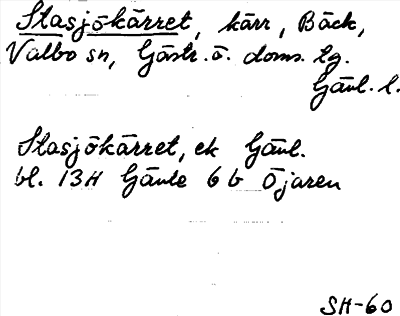 Stasjökärret, kärr, Bäck,
Valbo sn, Gästr. ö. doms. tg.
Gävl. l.
Stasjökärret, ek Gävl.
bl. 13H Gävle 6 b Öjaren
SH-60